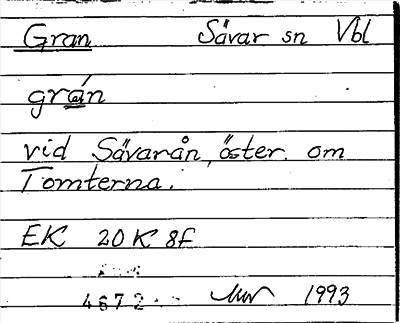 Gran Sävar sn Vbl
grán
vid Sävarån, öster om
Tomterna.
EK 20 K 8f
4672 1993